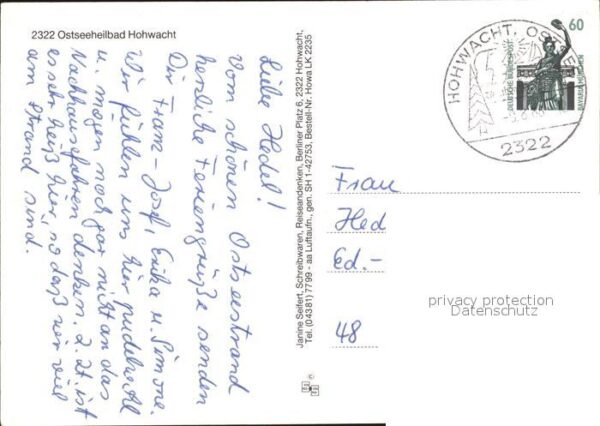 2322 Ostseeheilbad Hohwacht
Liebe Hedel!
Vom schönen Ostseestrand
herzliche Feriengrüße senden
Dir Franz-Josef, Erika u. Simone.
Wir fühlen uns hier pudelwohl
u. mögen noch gar nicht an das
Nachhausefahren denken. Z. Zt. ist
es sehr heiß hier, so daß wir viel
am Strand sind.
Janine Seifert, Schreibwaren, Reiseandenken, Berliner Platz 6, 2322 Hohwacht,
Tel. (04381) 7799 - aa Luftaufn., gen. SH 1-42753, Bestell-Nr. Howa LK 2235
HOHWACHT, OSTSEE
2322
60
DEUTSCHE BUNDESPOST
BAVARIA MÜNCHEN
Frau
Hed
Ed.-
48
privacy protection
Datenschutz